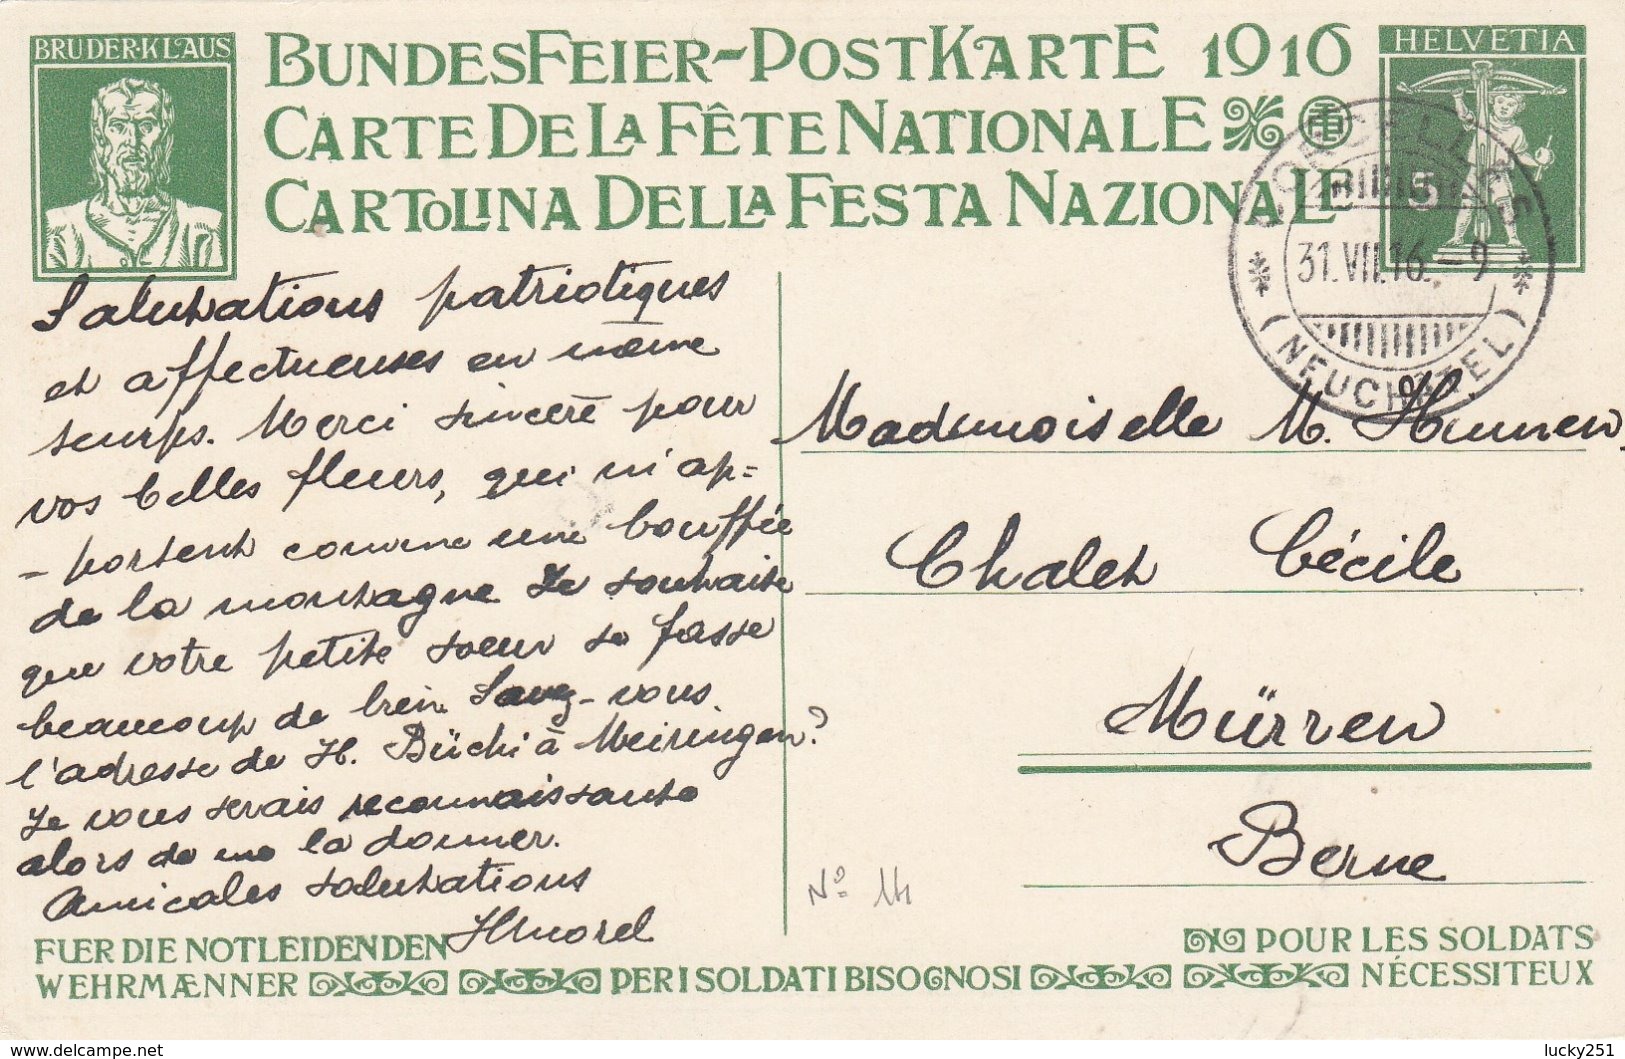 BRUDER·KLAUS
BUNDESFEIER-POSTKARTE 1916
CARTE DE LA FÊTE NATIONALE
CARTOLINA DELLA FESTA NAZIONALE
HELVETIA
5
CORCELLES
31.VII.16.-9
(NEUCHATEL)
Salutations patriotiques
et affectueuses en même
temps. Merci sincère pour
vos belles fleurs, qui m'ap=
=portent comme une bouffée
de la montagne Je souhaite
que votre petite soeur se fasse
beaucoup de bien Savez-vous
l'adresse de H. Büchi à Meiringen?
Je vous serais reconnaissante
alors de me la donner.
Amicales salutations
Mademoiselle M.
Chalet Cécile
Mürren
Berne
No 14
FUER DIE NOTLEIDENDEN
WEHRMÆNNER PER I SOLDATI BISOGNOSI
POUR LES SOLDATS
NÉCESSITEUX
www.delcampe.net
lucky251